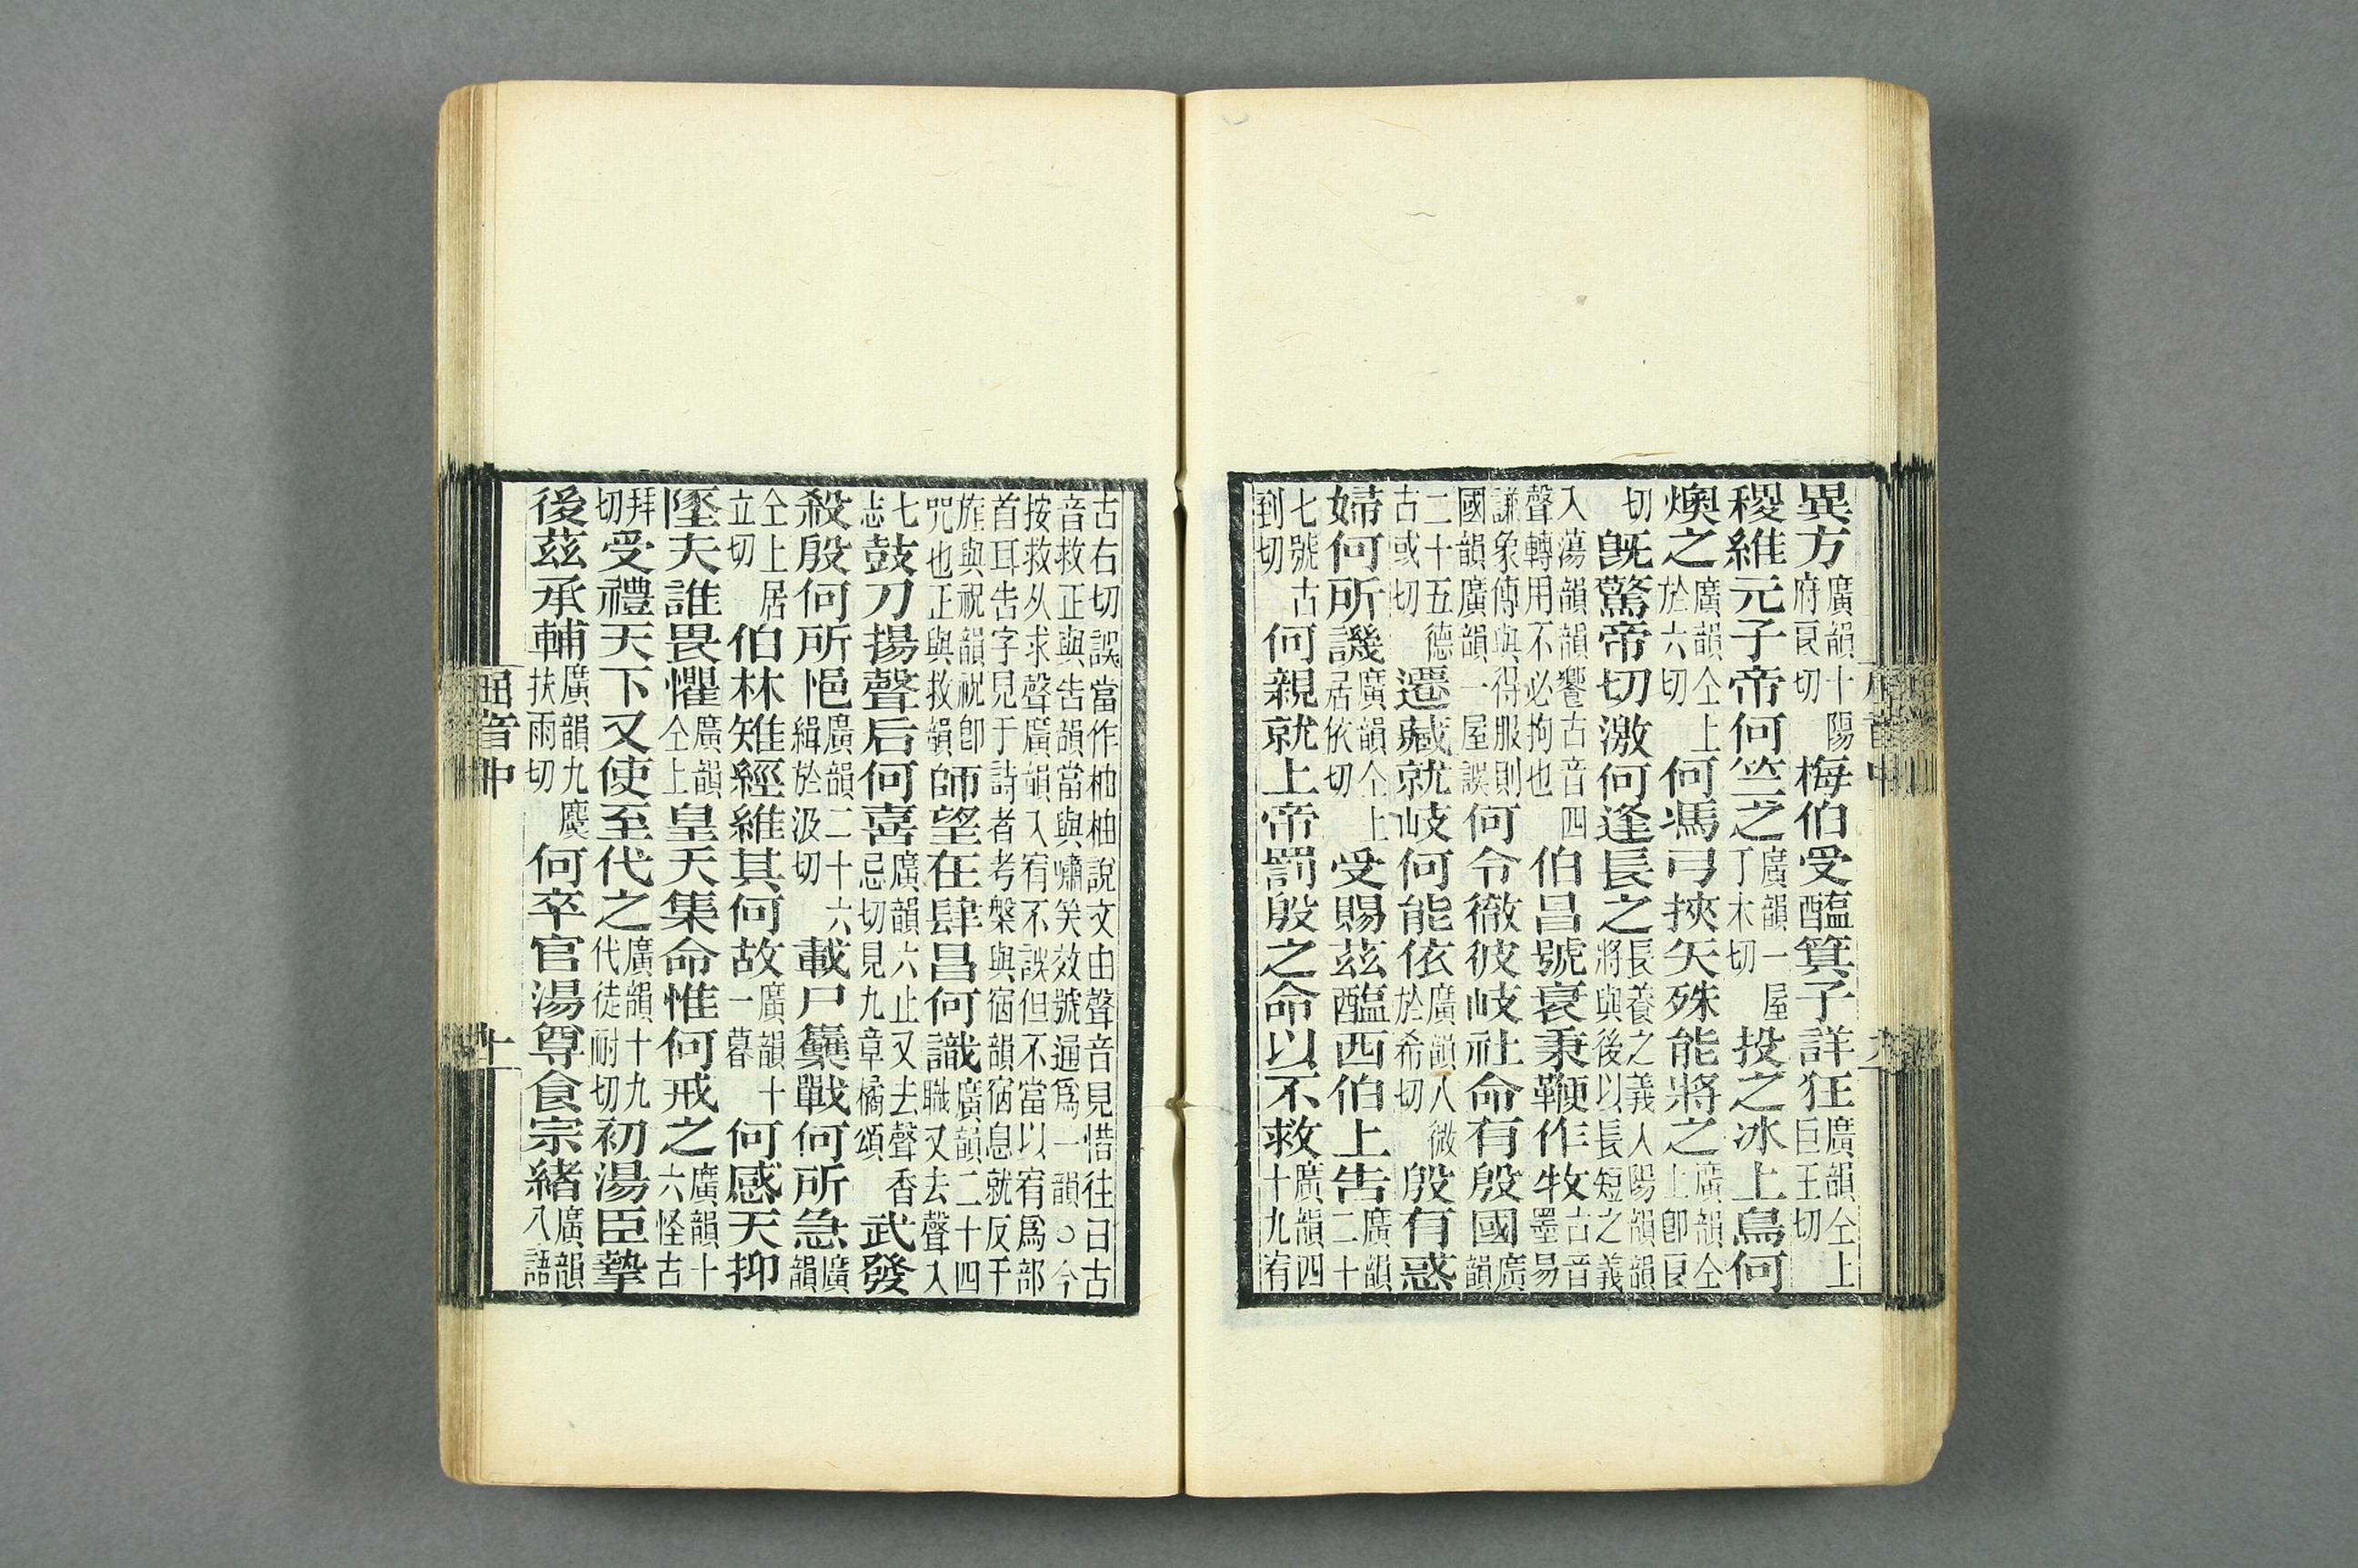 異方廣韻十陽府良切梅伯受醢箕子詳狂廣韻仝上巨王切
稷維元子帝何竺之廣韻一屋丁木切投之冰上鳥何
燠之廣韻仝上於六切何馮弓挾矢殊能將之廣韻仝上卽良
切旣驚帝切激何逢長之長養之義人陽韻韻將與後以長短之義
入蕩韻韻響古音四聲轉用不必拘也伯昌號衰秉鞭作牧古音墨易
謙象傳與得服則國韻廣韻一屋誤何令徹彼岐社命有殷國廣韻
二十五德古或切遷藏就岐何能依廣韻八微於希切殷有惑
婦何所譏廣韻仝上居依切受賜茲醢西伯上告廣韻二十
七號古到切何親就上帝罰殷之命以不救廣韻四十九宥
古右切誤當作柚柚說文由聲音見惜往日古
音救正與告韻當與嘯笑效號通爲一韻○今
按救从求聲廣韻入宥不誤但不當以宥爲部
首耳告字見于詩者考槃與宿韻宿息就反干
旄與祝韻祝卽咒也正與救韻師望在肆昌何識廣韻二十四職又去聲入
七志鼓刀揚聲后何喜廣韻六止又去聲香忌切見九章橘頌武發
殺殷何所悒廣韻二十六緝於汲切載尸雧戰何所急廣韻
仝上居立切伯林雉經維其何故廣韻十一暮何感天抑
墜夫誰畏懼廣韻仝上皇天集命惟何戒之廣韻十六怪古
拜切受禮天下又使至代之廣韻十九代徒耐切初湯臣摯
後茲承輔廣韻九麌扶雨切何卒官湯尊食宗緒廣韻八語
音中
十